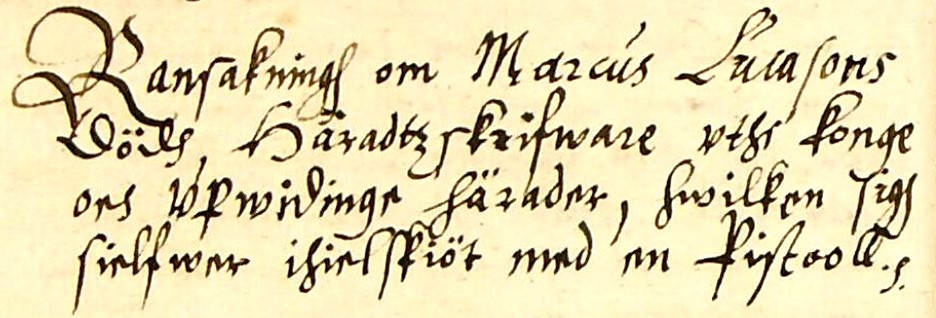 Ransakningh om Marcus Lucasons
Dödh, Häradtzskrifware vthi konge
och Vpwidinge härader, hwilken sigh
sielfwer ihielskiöt med en Pistooll.